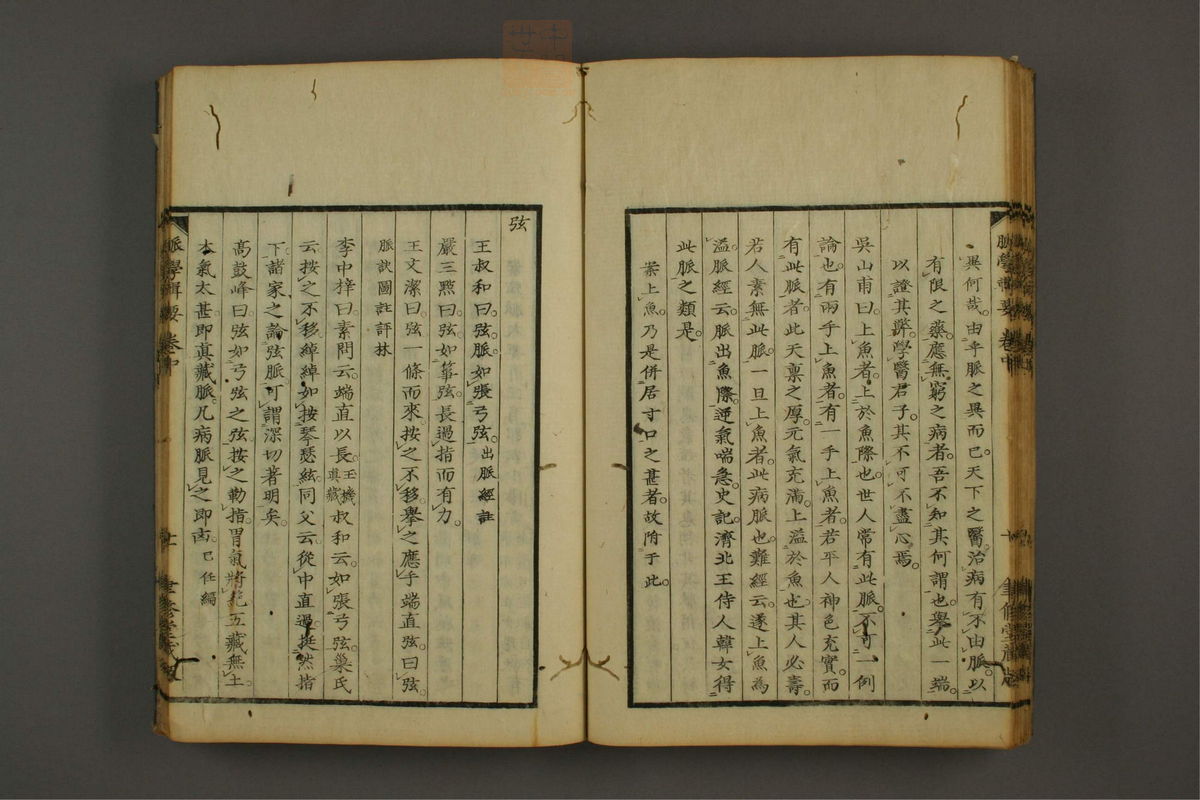 異何哉。由乎脈之異而已。天下之醫。治病有不由脈。以
有限之藥。應無窮之病者。吾不知其何謂也。舉此一端。
以證其弊。學醫君子。其不可不盡心焉。
吳山甫曰。上魚者。上於魚際也。世人常有此脈。不可一例
論也。有兩手上魚者。有一手上魚者。若平人神色充實。而
有此脈者。此天稟之厚。元氣充滿。上溢於魚也。其人必壽。
若人素無此脈。一旦上魚者。此病脈也。難經云。遂上魚為
溢。脈經云。脈出魚際。逆氣喘急。史記。濟北王侍人韓女得
此脈之類是。
案上魚。乃是併居寸口之甚者。故附于此。
弦
王叔和曰。弦脈。如張弓弦。出脈經註
嚴三點曰。弦如箏弦。長過指而有力。
王文潔曰。弦一條而來。按之不移。舉之應手端直弦曰弦
脈訣圖註評林
李中梓曰。素問云。端直以長。玉機真藏叔和云。如張弓弦。巢氏
云。按之不移。綽綽如按琴瑟絃。同父云。從中直過。挺然指
下。諸家之論弦脈。可謂深切著明矣。
高鼓峰曰。弦如弓弦之弦。按之勒指。胃氣將絕。五藏無土。
木氣太甚。即真藏脈。凡病脈見之即凶。已任編
脈學輯要 卷中
十
聿修堂藏版
脈學輯要 卷中
十一
聿修堂藏版